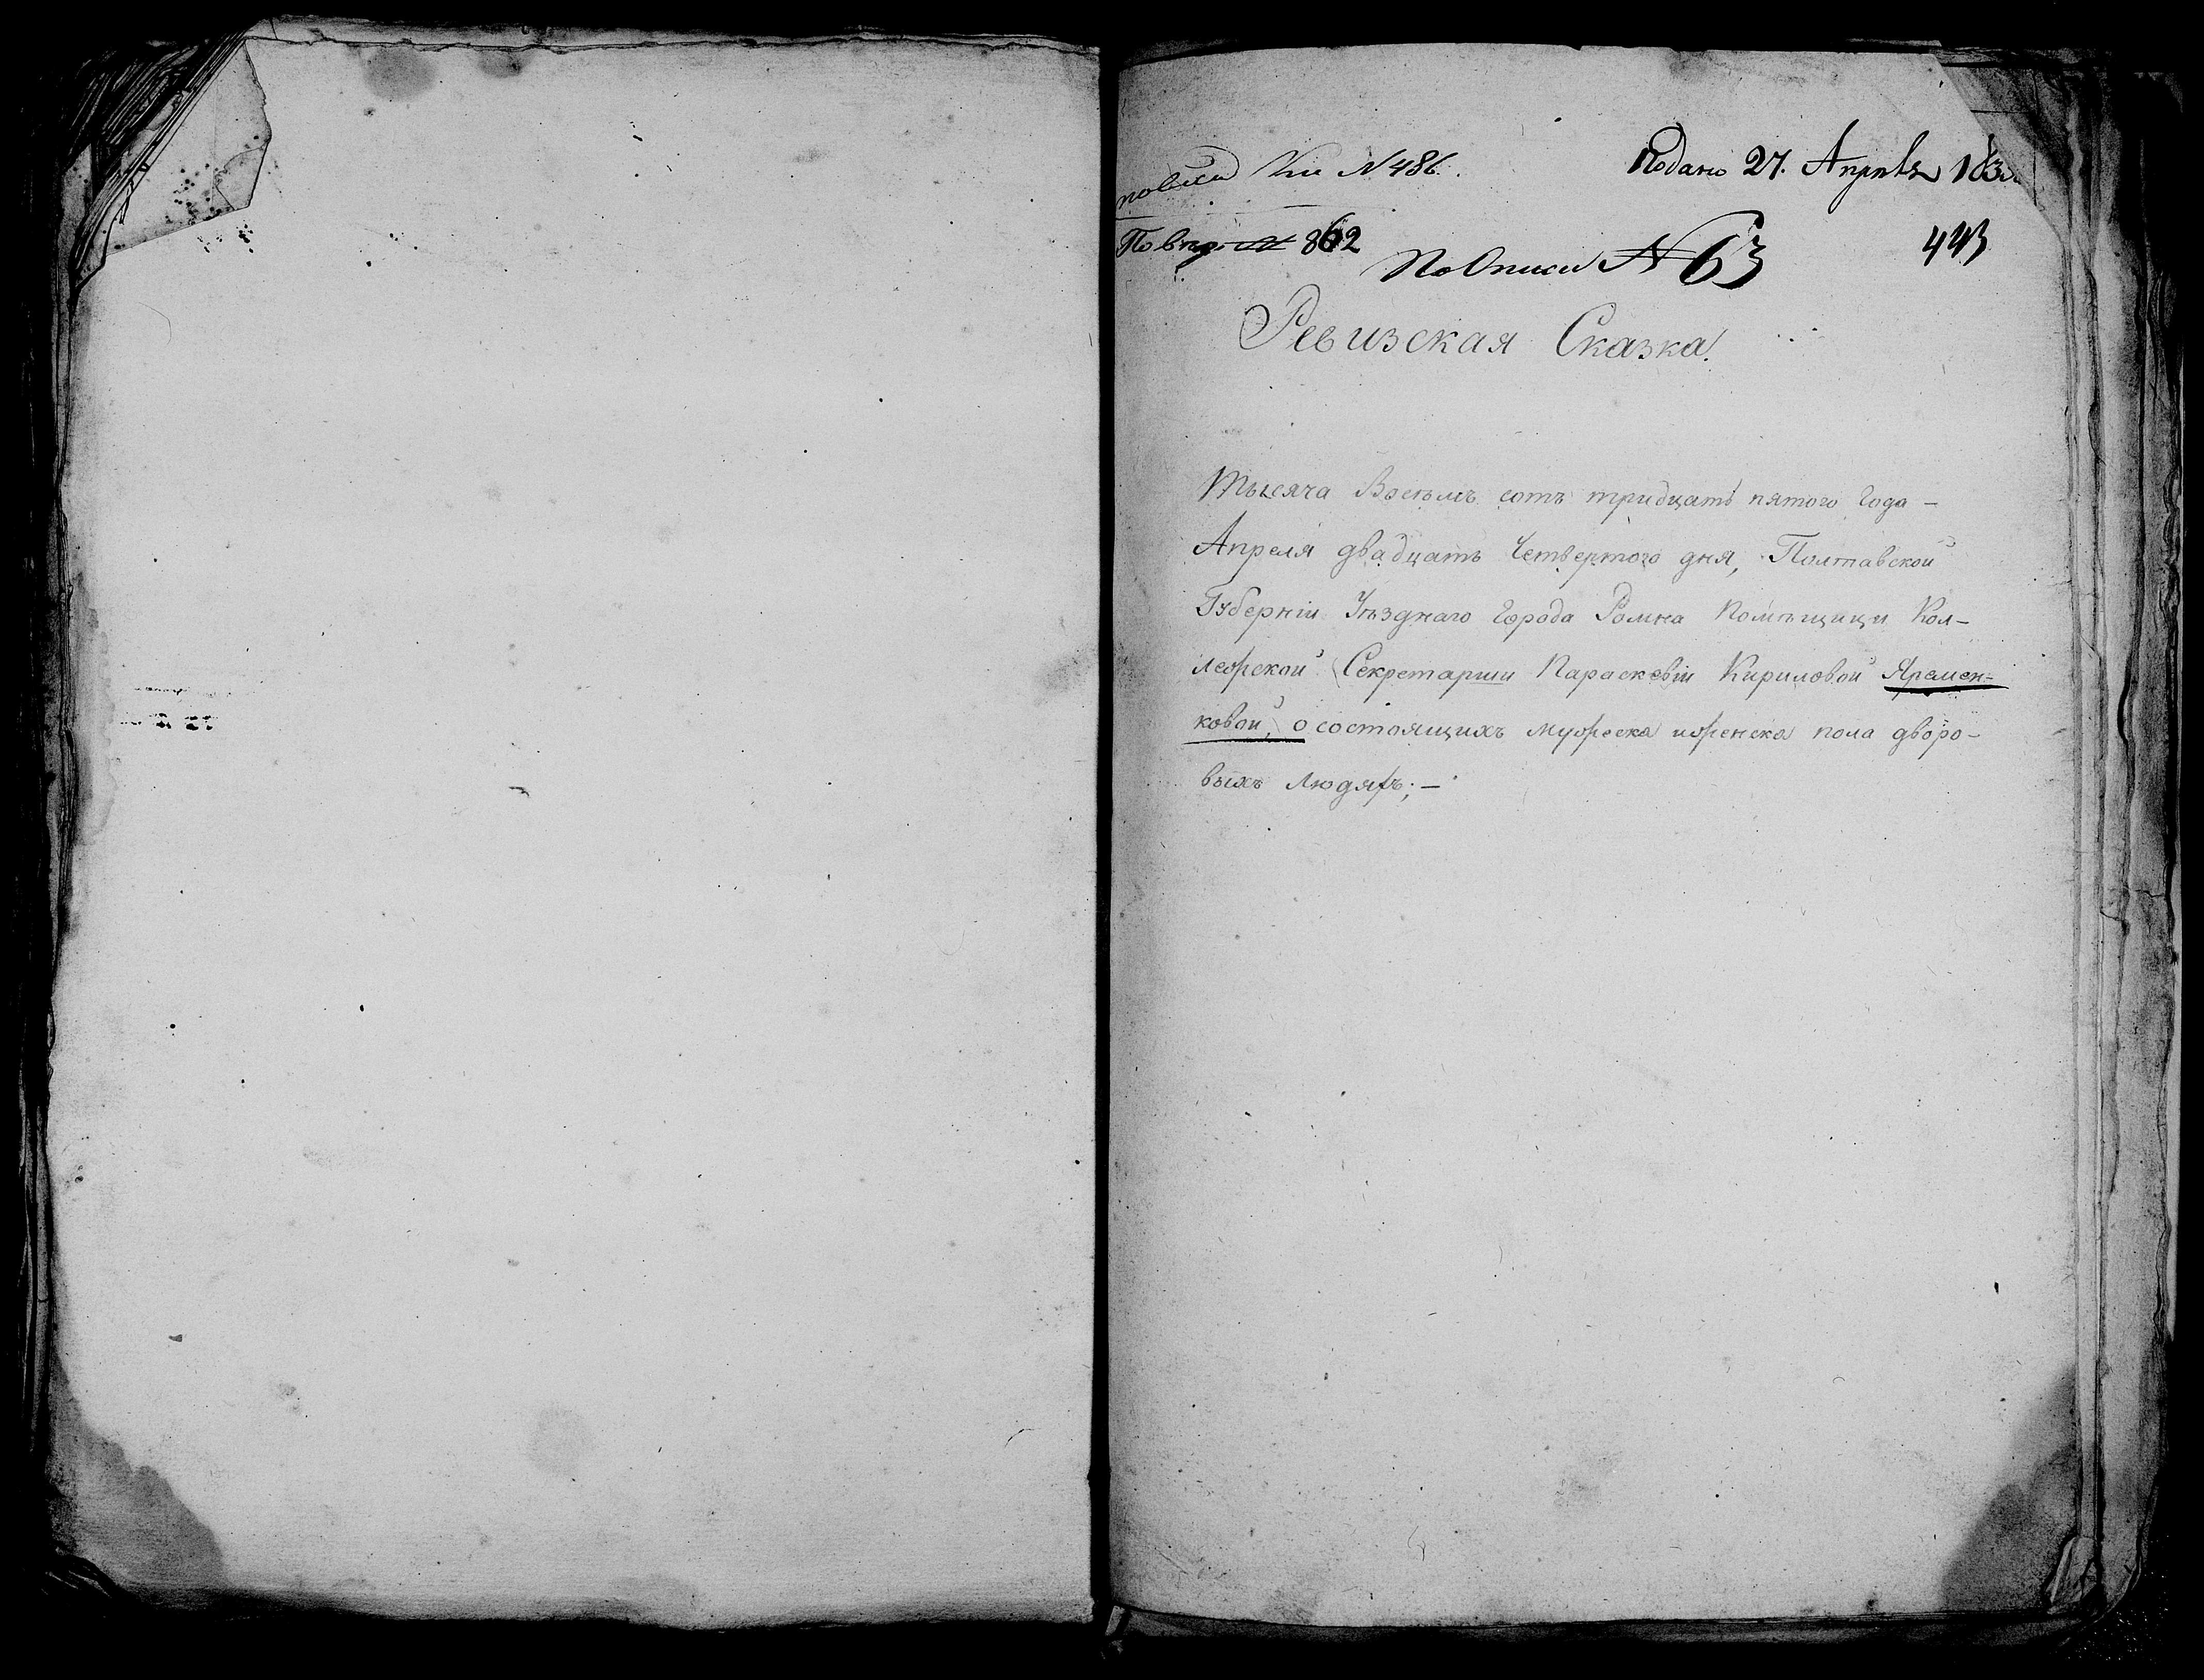 N 486.
Подано 27. Апрѣля 183
N 862
443
По Описи N 63
Ревизская Сказка.
Тысяча Восемъ сотъ тридцать пятого Года –
Апреля двадцать Четвертого дня, Полтавской
Губерніи Уѣзднаго Города Ромна Помѣщици Кол-
лежской Секретарши Параскевіи Кириловой Яремен-
ковой, о состоящихъ мужеска иженска пола дворо-
выхъ Людяхъ; –